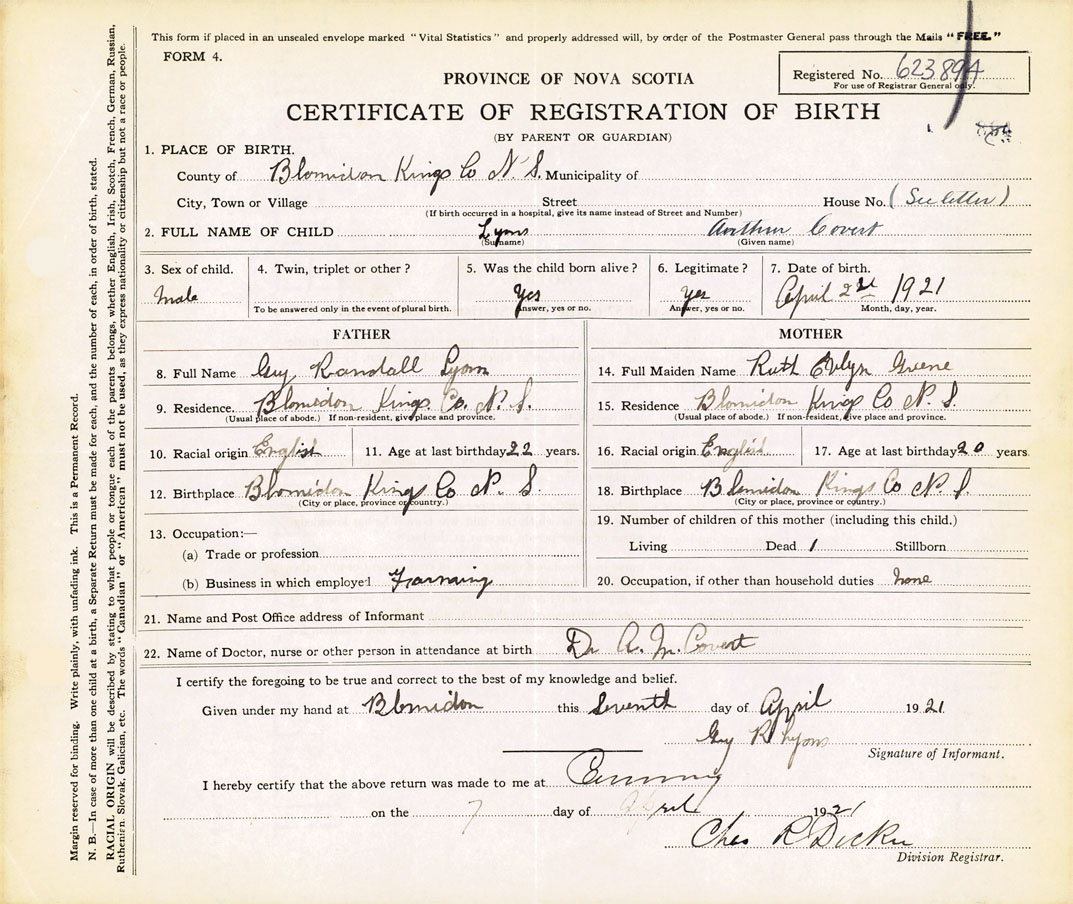 This form if placed in an unsealed envelope marked "Vital Statistics" and properly addressed will, by order of the Postmaster General pass through the Mails "FREE."
FORM 4.
PROVINCE OF NOVA SCOTIA
Registered No. 623894
For use of Registrar General only.
CERTIFICATE OF REGISTRATION OF BIRTH
(BY PARENT OR GUARDIAN)
1. PLACE OF BIRTH.
County of Blomidon Kings Co N.S. Municipality of
City, Town or Village Street House No. (See letter)
(If birth occurred in a hospital, give its name instead of Street and Number)
2. FULL NAME OF CHILD Lyons Arthur Covert
(Surname) (Given name)
3. Sex of child. 4. Twin, triplet or other? 5. Was the child born alive? 6. Legitimate? 7. Date of birth.
Male Yes Yes April 2nd 1921
To be answered only in the event of plural birth. Answer, yes or no. Answer, yes or no. Month, day, year.
FATHER
8. Full Name Guy Randall Lyons
9. Residence. Blomidon Kings Co. N. S.
(Usual place of abode.) If non-resident, give place and province.
10. Racial origin English 11. Age at last birthday 22 years.
12. Birthplace Blomidon Kings Co N. S.
(City or place, province or country.)
13. Occupation:—
(a) Trade or profession
(b) Business in which employed Farming
MOTHER
14. Full Maiden Name Ruth Evlyn Greene
15. Residence Blomidon Kings Co N. S.
(Usual place of abode.) If non-resident, give place and province.
16. Racial origin English 17. Age at last birthday 20 years
18. Birthplace Blomidon Kings Co N. S.
(City or place, province or country.)
19. Number of children of this mother (including this child.)
Living Dead 1 Stillborn
20. Occupation, if other than household duties none
21. Name and Post Office address of Informant
22. Name of Doctor, nurse or other person in attendance at birth Dr A. M. Covert
I certify the foregoing to be true and correct to the best of my knowledge and belief.
Given under my hand at Blomidon this Seventh day of April 1921.
Guy R Lyons
Signature of Informant.
I hereby certify that the above return was made to me at Canning
on the 7 day of April 1921
Chas R Dickie
Division Registrar.
Margin reserved for binding. Write plainly, with unfading ink. This is a Permanent Record.
N. B.—In case of more than one child at a birth, a Separate Return must be made for each, and the number of each, in order of birth, stated.
RACIAL ORIGIN will be described by stating to what people or tongue each of the parents belongs, whether English, Irish, Scotch, French, German, Russian,
Ruthenien, Slovak, Galician, etc. The words "Canadian" or "American" must not be used, as they express nationality or citizenship but not a race or people.